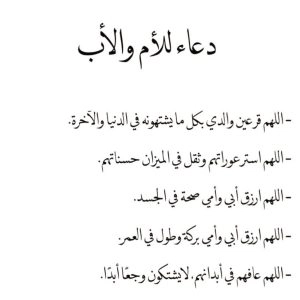 دعاء للأم والأب
- اللهم قر عين والدي بكل ما يشتهونه في الدنيا والآخرة.
- اللهم استر عوراتهم وثقل في الميزان حسناتهم.
- اللهم ارزق أبي وأمي صحة في الجسد.
- اللهم ارزق أبي وأمي بركة وطول في العمر.
- اللهم عافهم في أبدانهم, لايشتكون وجعًا أبدًا.